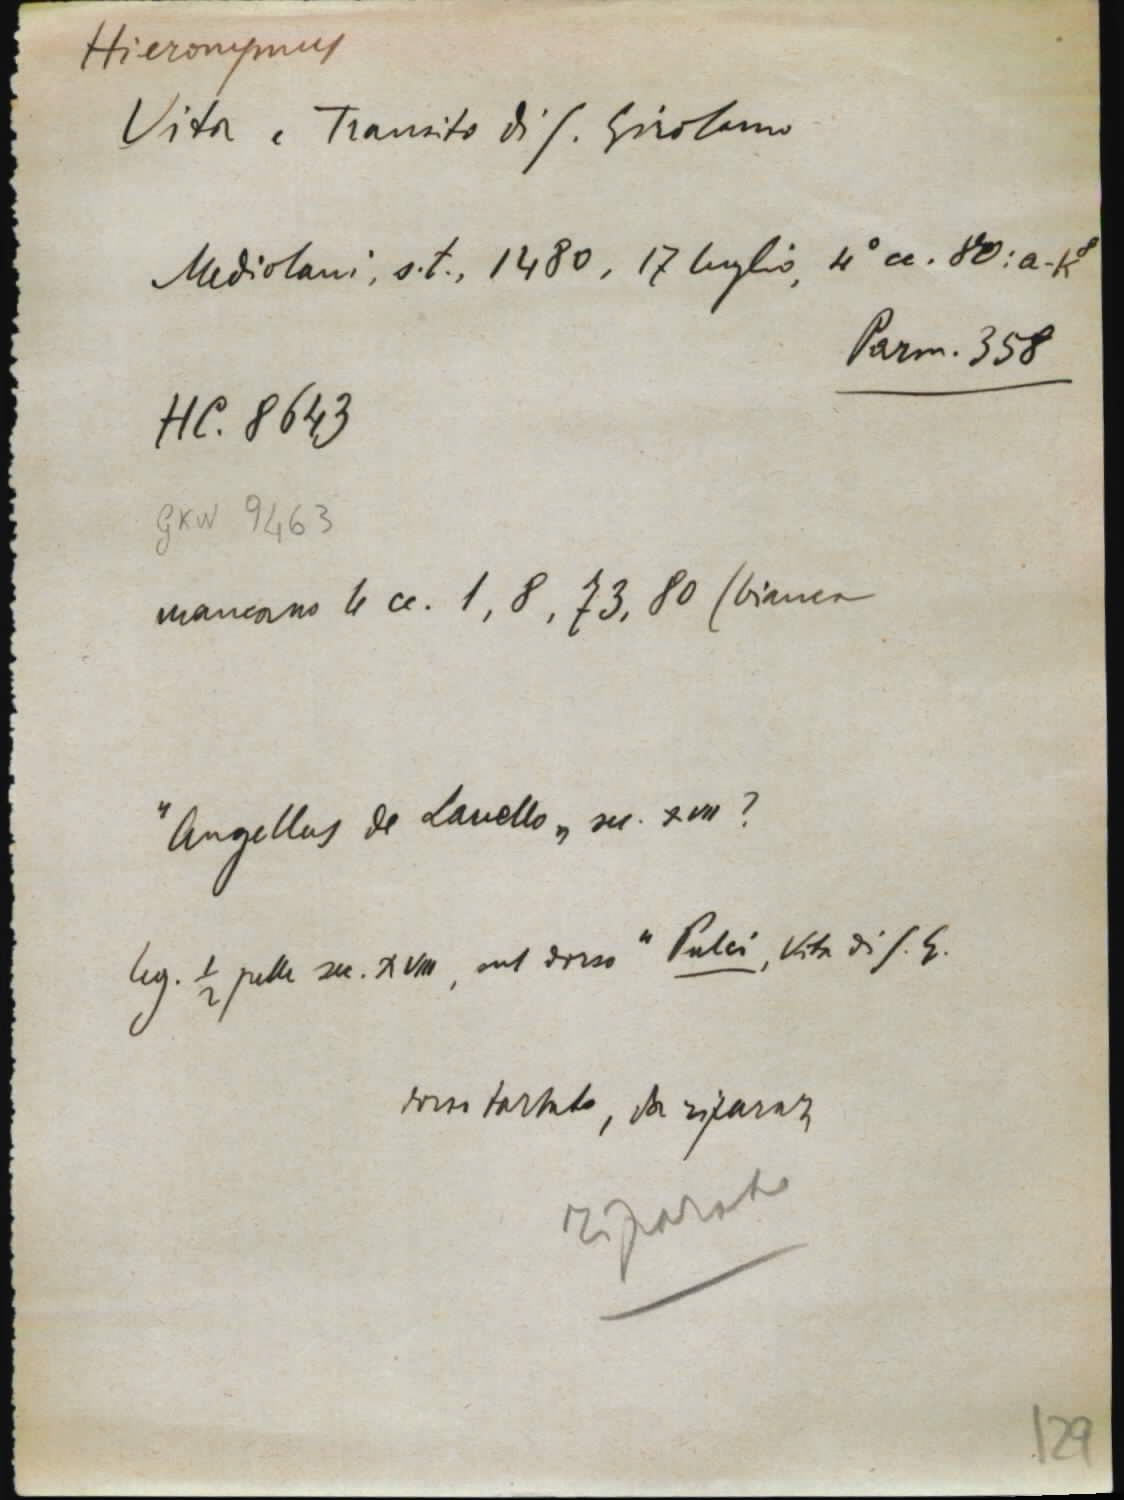 Hieronymus
Vita e Transito di S. Girolamo
Mediolani, s.t., 1480, 17 luglio, 4° cc. 80: a-k⁸
Parm. 358
HC. 8643
GKW 9463
mancano le cc. 1, 8, 73, 80 (bianca
"Angellus de Lavello„ sec. XVII?
leg. 1/2 pelle sec. XVIII, sul dorso "Pulci, Vita di S. G.
dorso tarlato, da riparare
riparato
129